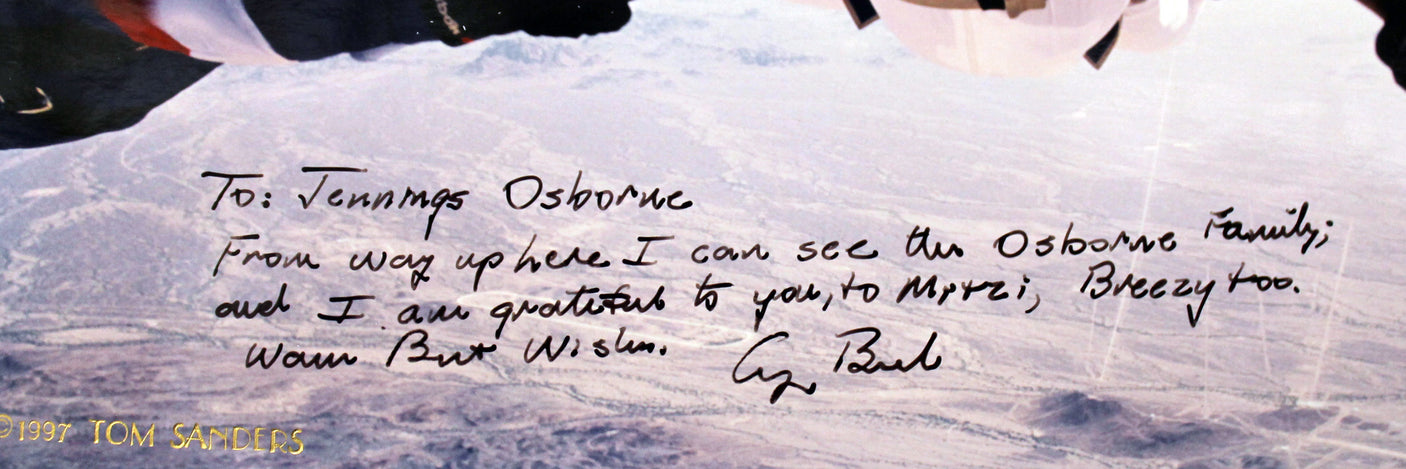 To: Jennings Osborne
From way up here I can see the Osborne Family;
and I am grateful to you, to Mitzi, Breezy too.
Warm Best Wishes. Gg Bush
©1997 TOM SANDERS